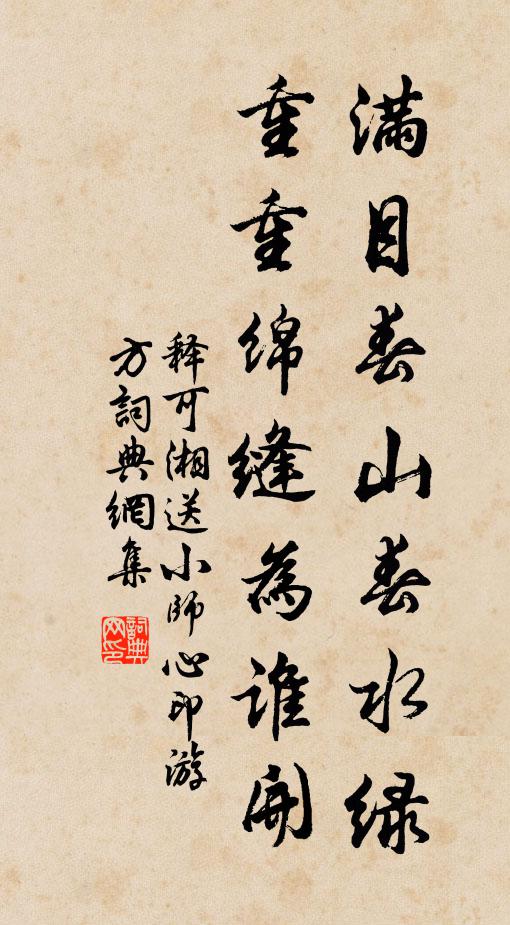 满目春山春水绿
重重绵缝為谁開
释可湘送小师心印游
方詞典網集
詞典网印